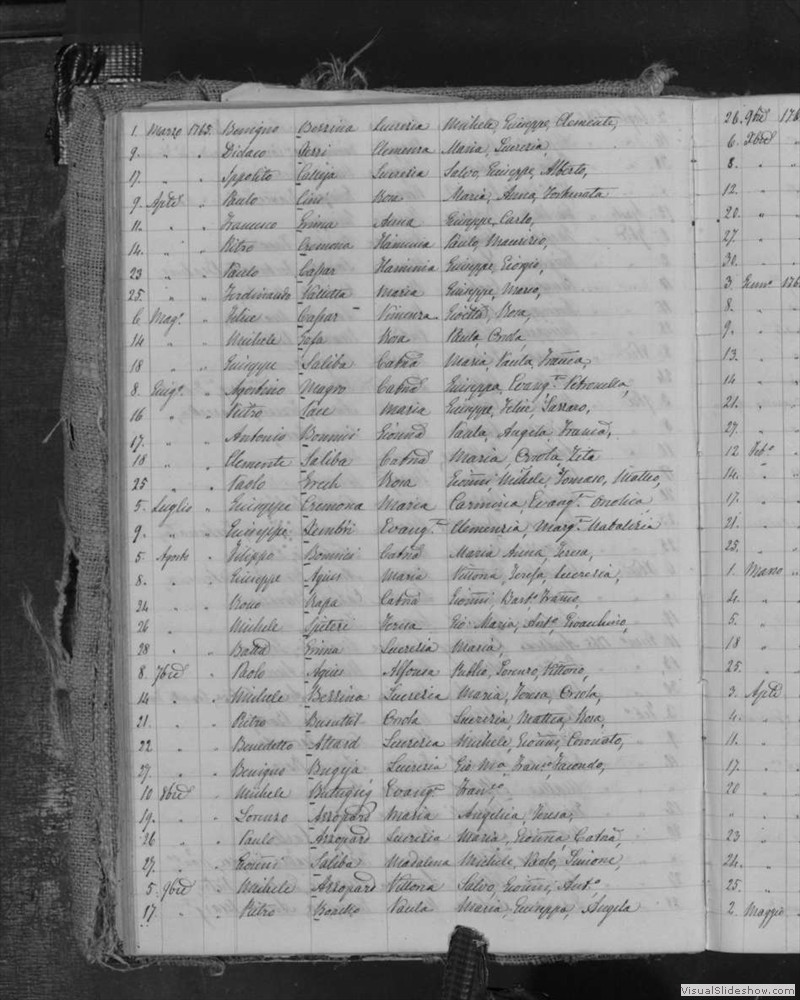 1. Marzo 1765 Benigno Berrina Lucrezia Michele, Giuseppe, Clemente,
9. " " Didaco Ferri Clemenza Maria, Lucrezia,
17. " " Ippolito Calleja Lucrezia Salvo, Giuseppe, Alberto,
9. Aprle " Paulo Cini Rosa Maria, Anna, Fortunata
11. " " Francesco Grima Anna Giuseppe, Carlo,
14. " " Pietro Cremona Flaminia Paulo, Maurizio,
23 " " Paulo Caspar Flaminia Giuseppe, Giorgio,
25. " " Ferdinando Valletta Maria Giuseppe, Mario,
6. Mago. " Felice Caspar Vincenza Rosa,
14 " " Michele Rosa Paula, Orsola,
18 " " Giuseppe Saliba Catna Maria, Paula, Franca,
8. Giugo. " Agostino Magro Catna Giuseppa, Evanga. Petronella,
16 " " Pietro Pace Maria Giuseppe, Felice,
17. " " Antonio Bonnici Gionna Paula, Angela, Franca,
18 " " Clemente Saliba Catna Maria, Orsola, Teta
25 " " Paolo Grech Rosa Gionni Michele, Tomaso, Matteo,
5. Luglio " Giuseppe Cremona Maria Carmina, Evanga.
9. " " Giuseppe Zembri Evanga. Clemenzia, Marga.
5. Agosto " Filippo Bonnici Catna Maria Anna, Teresa,
8. " " Giuseppe Agius Maria Vittoria, Josefa, Lucrezia,
24 " " Rapa Catna Gionni, Barto. Franco,
26 " " Michele Spiteri Teresa Gio: Maria, Anto. Gioachino,
28 " " Grima Lucrezia Maria,
8. 7bre " Paolo Agius Alfonsa Publio, Lorenzo, Vittorio,
14 " " Michele Berrina Lucrezia Maria, Teresa, Orsola,
21. " " Pietro Busuttil Orsola Lucrezia, Mattea, Rosa,
22 " " Benedetto Attard Lucrezia Michele, Gionni, Coronato,
27. " " Benigno Bugeja Lucrezia Gio Ma. Franco. Facondo,
10 8bre " Michele Buttigieg Evanga. Franco.
19. " " Lorenzo Azzopard Maria Angelica, Teresa,
26 " " Paulo Azzopard Lucrezia Maria, Gionna, Catna,
27. " " Gionni Saliba Madalena Michele, Paolo, Simone,
5. 9bre " Michele Azzopard Vittoria Salvo, Gionni, Anto.
17. " " Pietro Paula Maria, Giuseppa, Angela
26. 9bre 176
6. Xbre "
8. "
12. "
20. "
27. "
30. "
3. Genno. 176
8. "
9. "
13. "
14 "
21. "
27. "
12 Febo. "
14. "
17. "
21. "
25. "
1. Marzo "
4. "
5. "
18 "
25. "
3. Aprle "
4. "
11. "
17. "
20 "
" "
23 "
24. "
25. "
2. Maggio "
VisualSlideshow.com